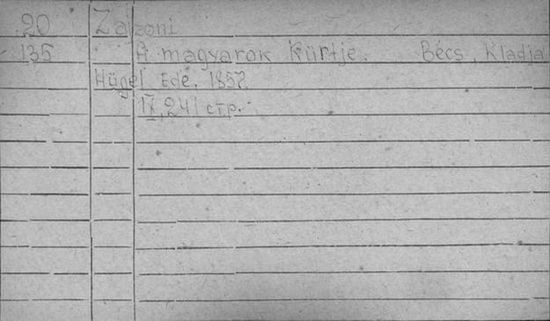 20 Zajzoni
135 A magyarok kürtje. Bécs, Kladja
Hügel Ede. 1857
IV, 241 стр.